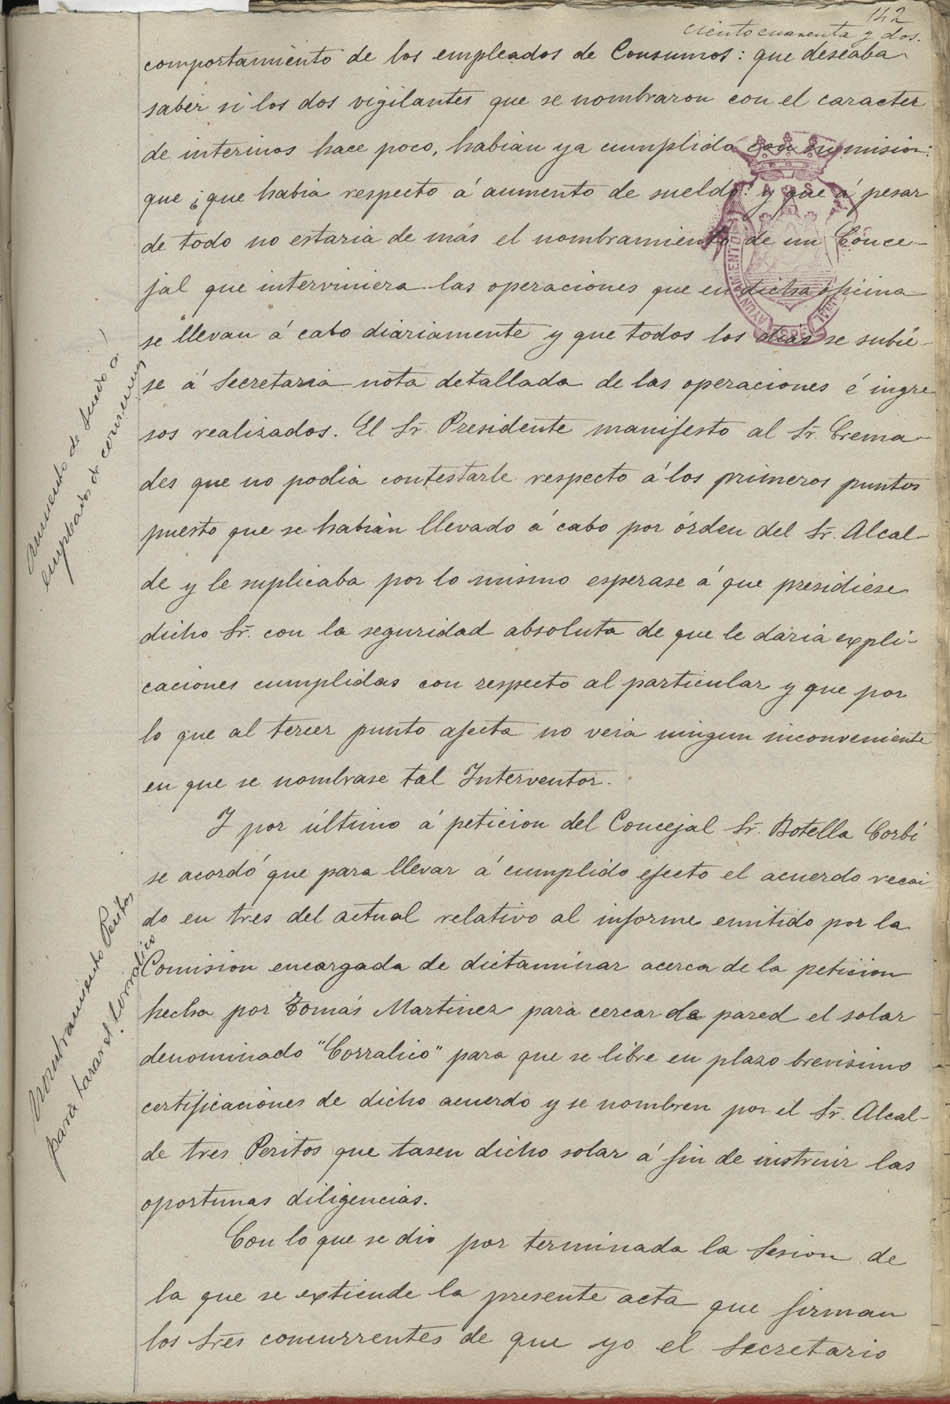 142
ciento cuarenta y dos.
comportamiento de los empleados de Consumos: que deseaba
saber si los dos vigilantes que se nombraron con el caracter
de interinos hace poco, habian ya cumplido con su mision:
que ¿que habia respecto á aumento de sueldo: y que á pesar
de todo no estaria de más el nombramiento de un Conce-
jal que interviniera las operaciones que en dicha oficina
se llevan á cabo diariamente y que todos los dias se subie-
se á Secretaria nota detallada de las operaciones é ingre
sos realizados. El Sr. Presidente manifesto al Sr. Crema-
des que no podia contestarle respecto á los primeros puntos
puesto que se habián llevado á cabo por órden del Sr. Alcal-
de y le suplicaba por lo mismo esperase á que presidiese
dicho Sr. con la seguridad absoluta de que le daria expli-
caciones cumplidas con respecto al particular y que por
lo que al tercer punto afecta no veia ningun inconveniente
en que se nombrase tal Interventor.
Y por último á peticion del Concejal Sr. Botella Corbí
se acordó que para llevar á cumplido efecto el acuerdo recai
do en tres del actual relativo al informe emitido por la
Comision encargada de dictaminar acerca de la peticion
hecha por Tomás Martinez para cercar de pared el solar
denominado "Corralico" para que se libre en plazo brevisimo
certificaciones de dicho acuerdo y se nombren por el Sr. Alcal-
de tres Peritos que tasen dicho solar á fin de instruir las
oportunas diligencias.
Con lo que se dió por terminada la Sesion de
la que se extiende la presente acta que firman
los Sres concurrentes de que yo el Secretario
aumento de sueldo á
empleados de consumos
Nombramiento Peritos
para tasar el Corralico
AYUNTAMIENTO